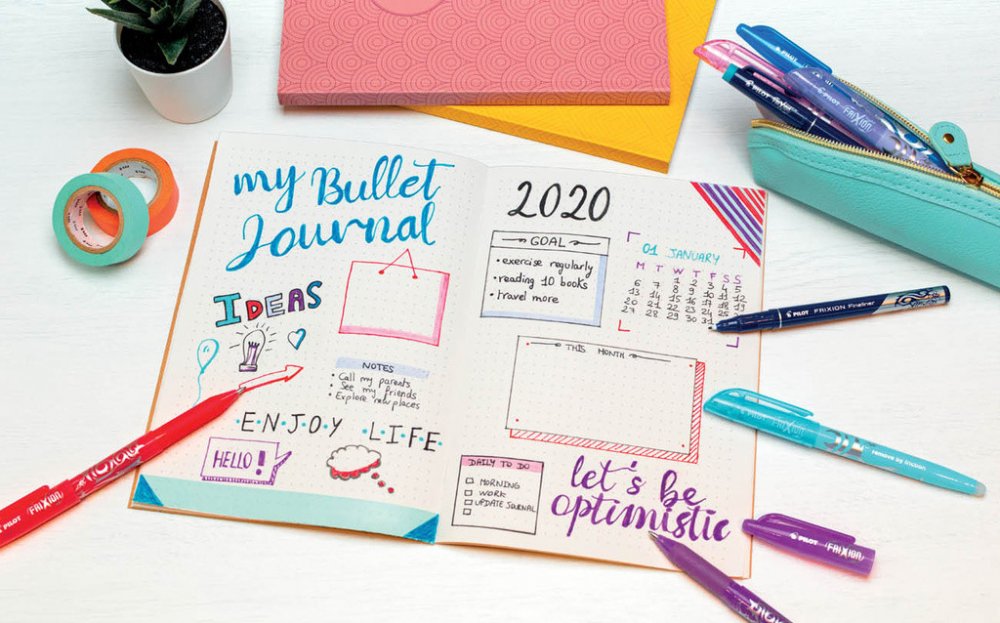 my Bullet
Journal
IDEAS
NOTES
• Call my parents
• See my friends
• Explore new places
E•N•J•O•Y LIFE
HELLO!
2020
GOAL
• exercise regularly
• reading 10 books
• travel more
01 JANUARY
M T W T F S S
1 2 3 4 5
6 7 8 9 10 11 12
13 14 15 16 17 18 19
20 21 22 23 24 25 26
27 28 29 30 31
THIS MONTH
DAILY TO DO
MORNING
WORK
UPDATE JOURNAL
let's be
optimistic
PILOT FRIXION
PILOT
PILOT FRIXION
PILOT FRIXION Fineliner
PILOT FRIXION
remove by friction
PILOT FRIXION